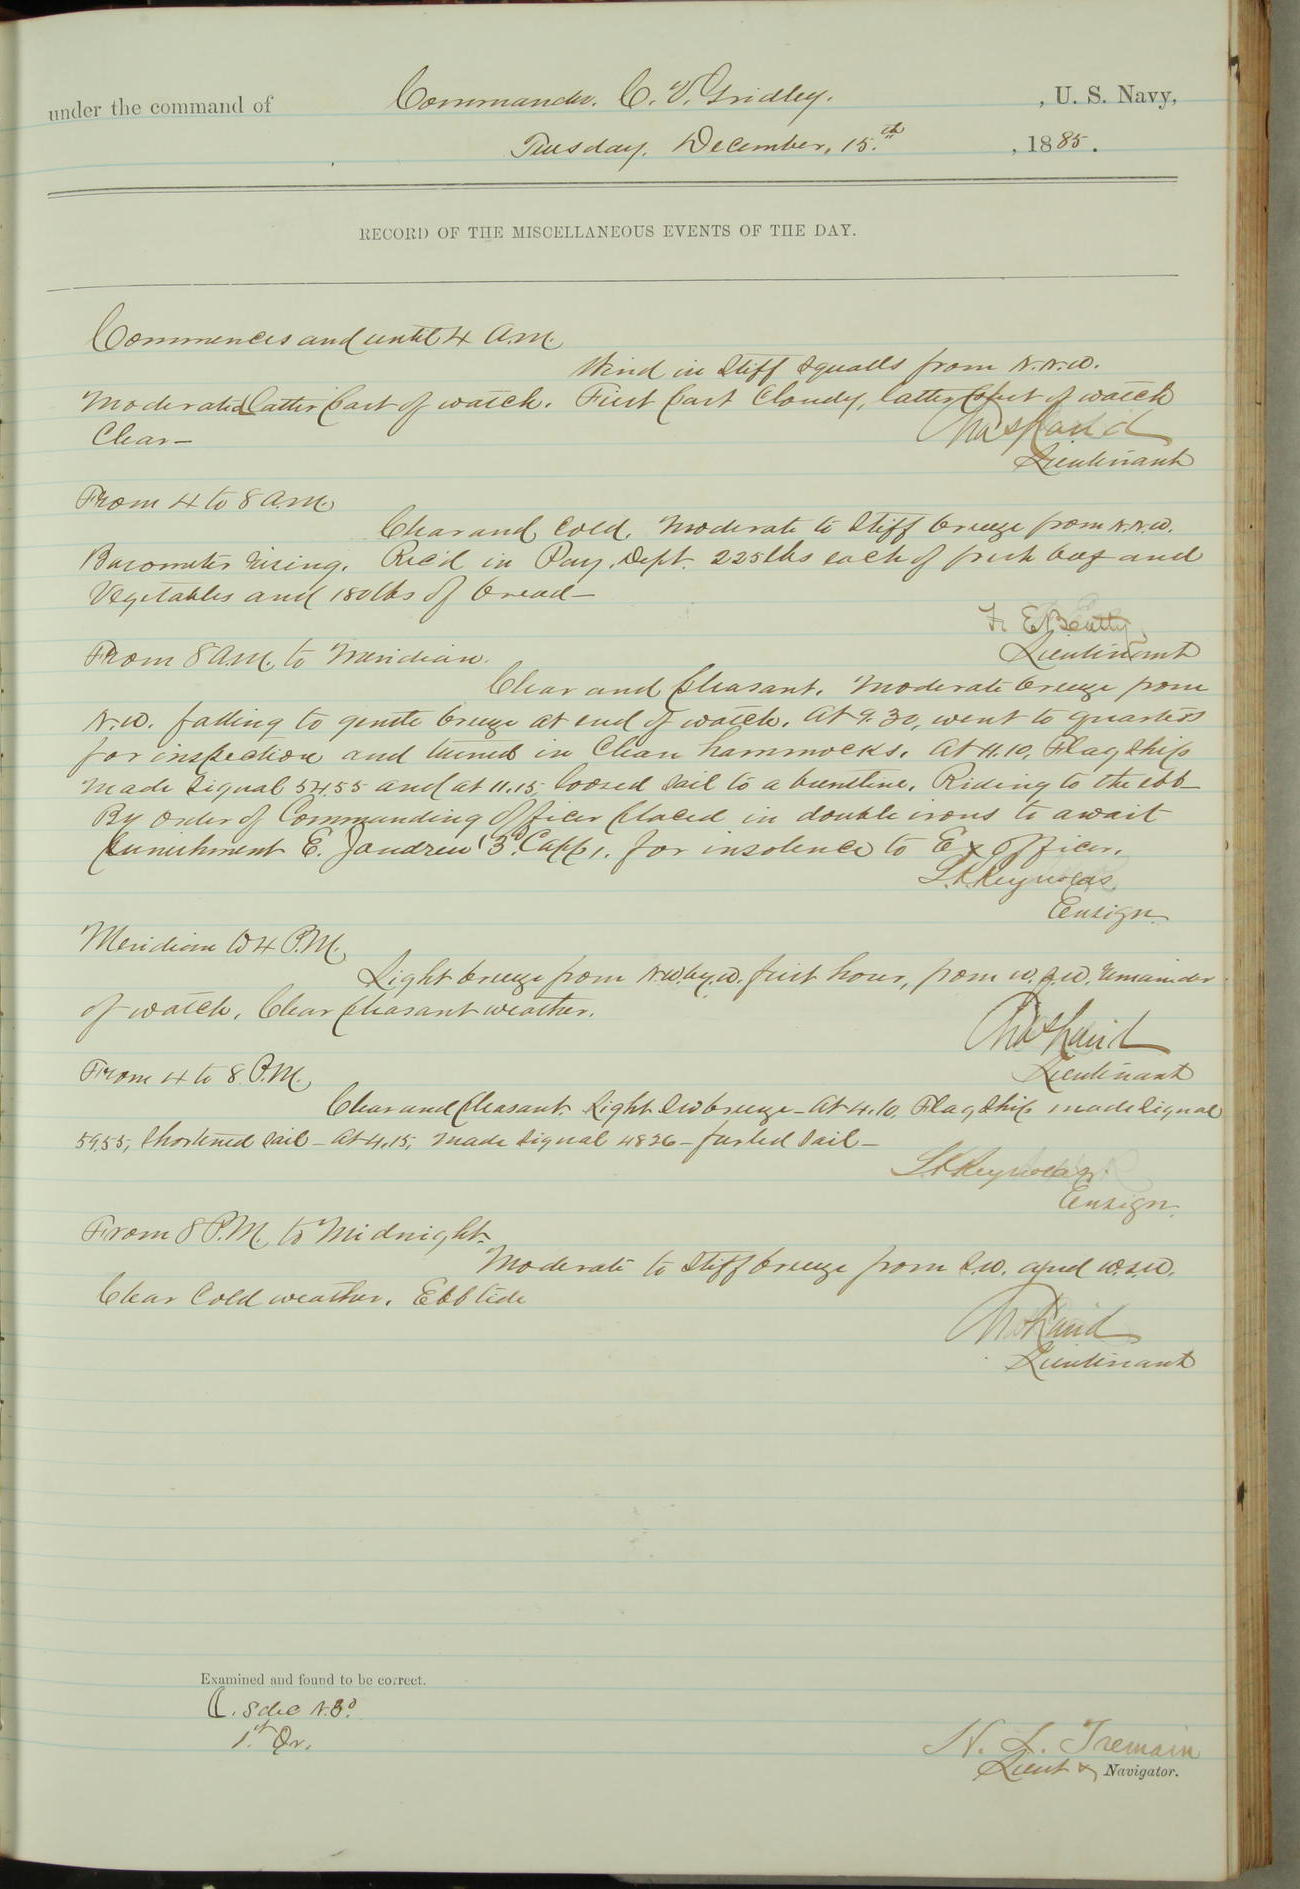 under the command of Commander. C. V. Gridley. , U. S. Navy,
Tuesday, December, 15.th , 1885.
RECORD OF THE MISCELLANEOUS EVENTS OF THE DAY.
Commences and until 4 A.M.
Wind in Stiff Squalls from N.N.W.
Moderated Latter Part of watch. First Part Cloudy, latter Part of watch
Clear—
Lieutenant
From 4 to 8 A.M.
Clear and Cold, Moderate to Stiff breeze from N.N.W.
Barometer rising. Rec'd in Pay. Dept. 225 lbs each of fresh beef and
Vegetables and 180 lbs of bread—
F. E. Beatty,
Lieutenant
From 8 A.M. to Meridian.
Clear and Pleasant. Moderate breeze from
N.W. falling to gentle breeze at end of watch. At 9.30, went to quarters
for inspection and turned in Clean hammocks. At 11.10, Flag Ship
made Signal 5455 and at 11.15, loosed Sail to a buntline. Riding to the ebb—
By order of Commanding Officer placed in double irons to await
Punishment E. Jaudreu (3d. Capp), for insolence to Ex Officer.
L. K. Reynolds,
Ensign.
Meridian to 4 P.M.
Light breeze from N.W. by W. first hour, from W.S.W. remainder
of watch. Clear Pleasant weather.
Lieutenant
From 4 to 8 P.M.
Clear and Pleasant. Light SW breeze— At 4.10, Flag Ship made Signal
5955, Shortened Sail— At 4.15, made Signal 4826— furled Sail—
L. K. Reynolds,
Ensign.
From 8 P.M. to Midnight.
Moderate to Stiff breeze from S.W. and W.S.W.
Clear Cold weather. Ebb tide
Lieutenant
Examined and found to be correct.
1st Qr.
H. L. Tremain
Lieut & Navigator.